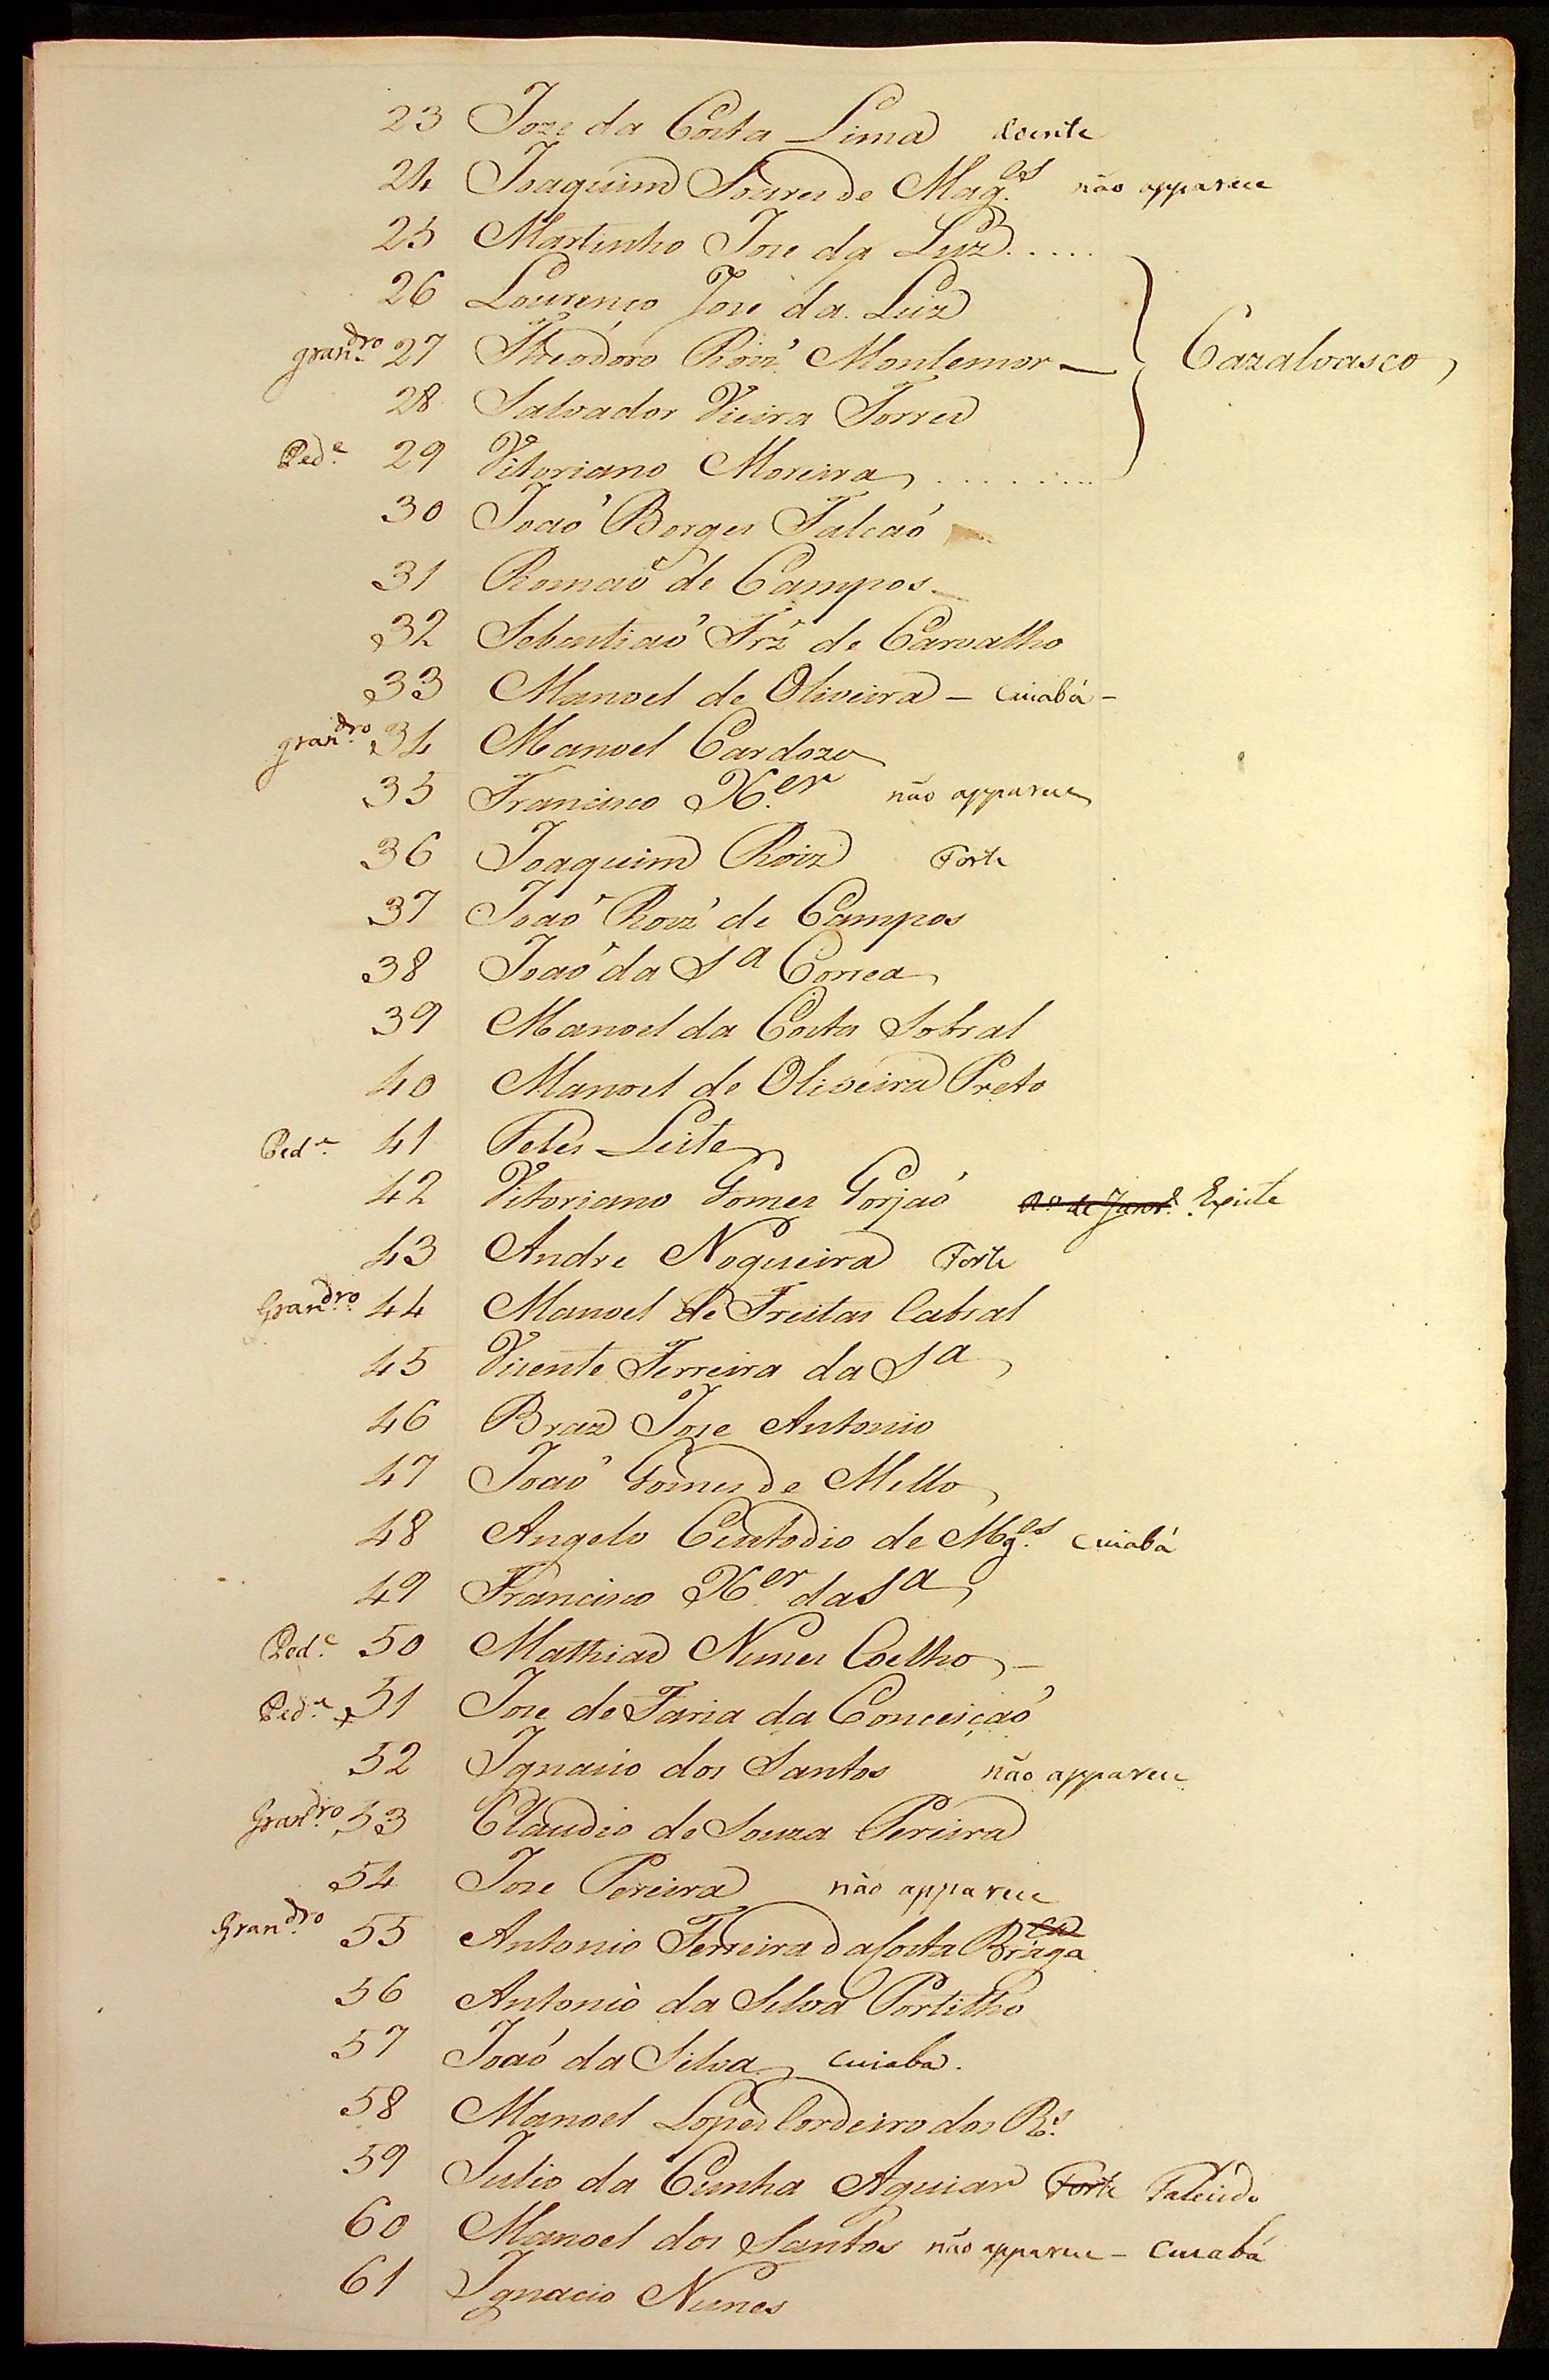 23 Joze da Costa Lima doente
24 Joaquim Soares de Mag.es não apparece
25 Martinho Joze da Luz.....
26 Lourenço Joze da Luz
grand.ro 27 Theodoro Roiz' Montemor — Cazalvasco
28 Salvador Vieira Torres
Ped.e 29 Vitoriano Moreira .........
30 Joaõ Borges Falcaõ
31 Romaõ de Campos
32 Sebastiaõ Frz' de Carvalho
33 Manoel de Oliveira – Cuiabá –
grand.ro 34 Manoel Cardozo
35 Francisco X.er não apparece
36 Joaquim Roiz Forte
37 Joaõ Roiz' de Campos
38 Joaõ da S.a Correa
39 Manoel da Costa Sobral
40 Manoel de Oliveira Preto
Ped.e 41 Felis Leite
42 Vitoriano Gomes Gorjaõ R.o de Janr.o Existe
43 Andre Nogueira Forte
Grand.ro 44 Manoel de Freitas Cabral
45 Vicente Ferreira da S.a
46 Braz Joze Antonio
47 Joaõ Gomes de Mello
48 Angelo Custodio de Mg.es Cuiabá
49 Francisco X.er da S.a
Ped.e 50 Mathias Nunes Coelho –
Ped.e 51 Joze de Faria da Conceiçaõ
52 Ignacio dos Santos não apparece
Grand.ro 53 Claudio de Souza Pereira
54 Joze Pereira não apparece
Grand.ro 55 Antonio Ferreira da Costa Braga
56 Antonio da Silva Portilho
57 Joaõ da Silva Cuiaba.
58 Manoel Lopes Cordeiro dos R.s
59 Julio da Cunha Aguiar Forte Falecido
60 Manoel dos Santos não apparece – Cuiabá
61 Ignacio Nunes